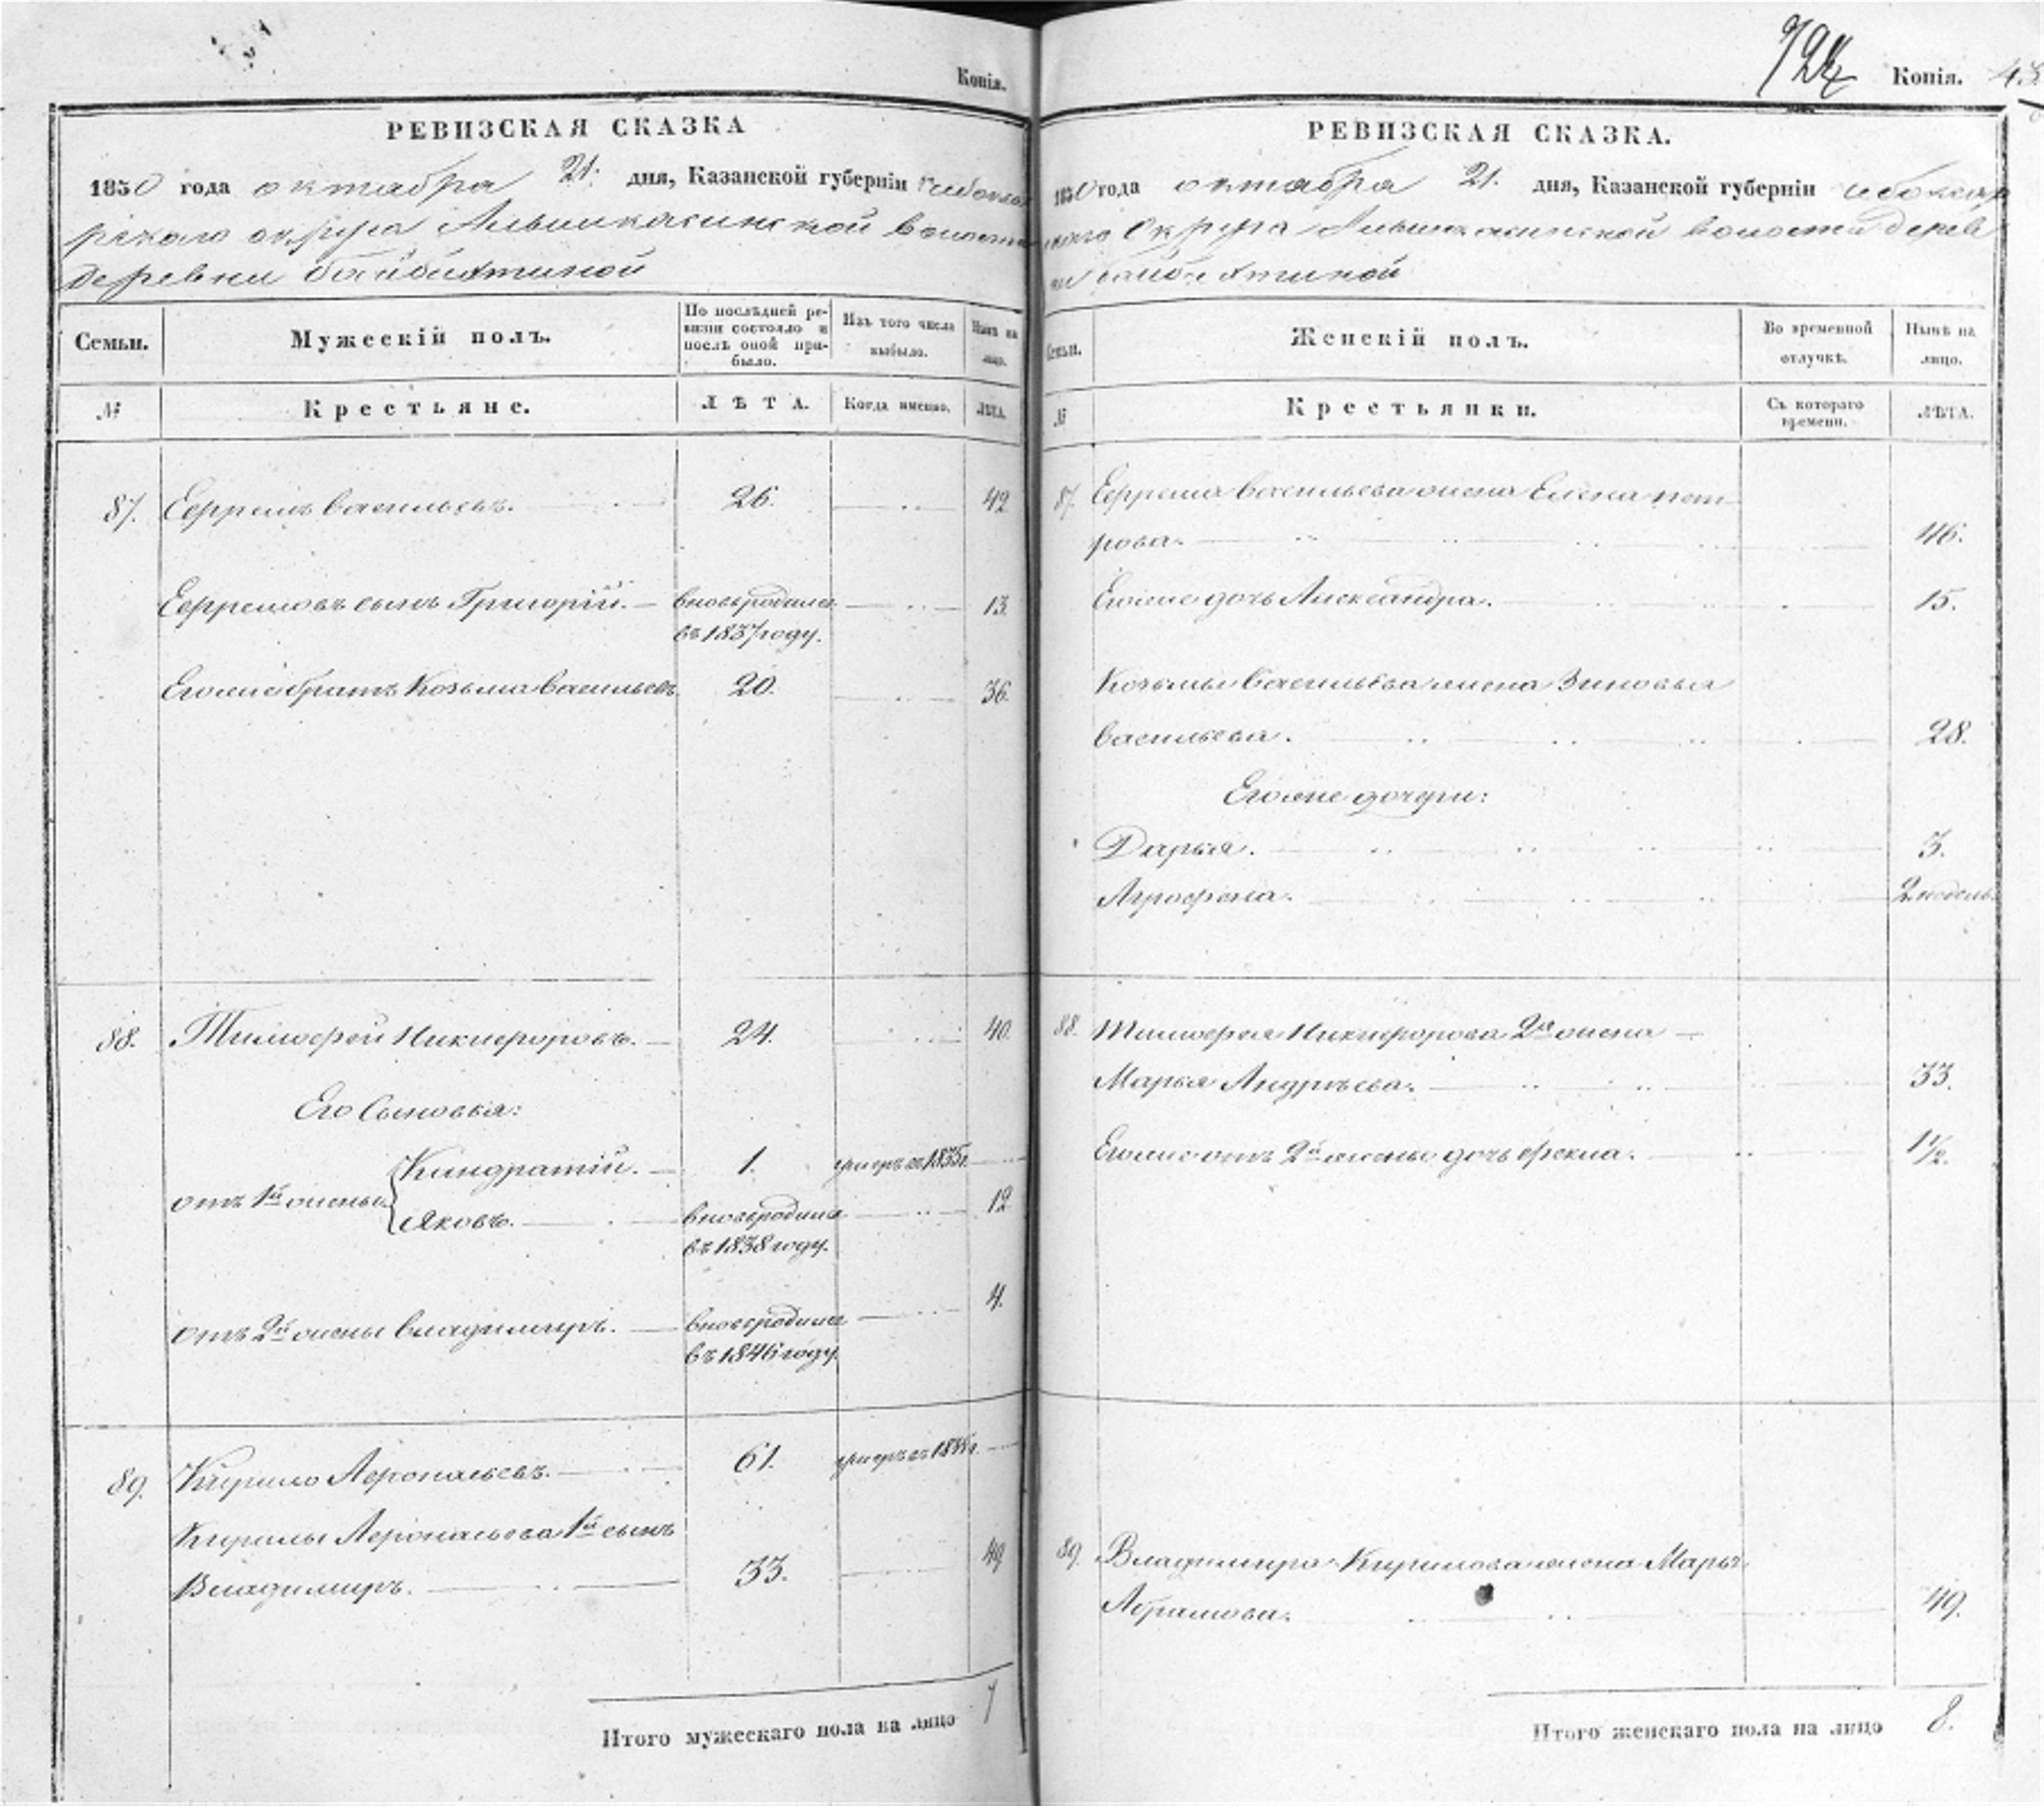 Копія.
РЕВИЗСКАЯ СКАЗКА
1850 года октабра 21. дня, Казанской губерніи Чебокса
рскаго округа Алымкасинской волости
деревни байбахтиной
Семьи.
Мужескій полъ.
По послѣдней ре-
визіи состояло и
послѣ оной при-
было.
Изъ того числа
выбыло.
Нынѣ на
лицо.
№
Крестьяне.
ЛѢТА.
Когда именно.
ЛѢТА.
87. Ефремъ васильевъ. 26. 42
Ефремовъ сынъ Григорій. вновьродился 13.
въ 1837 году.
Егоже братъ Козьма васильевъ 20. 36.
88. Тимофей Никифоровъ. 24. 40.
Его Сыновья:
отъ 1й жены Киндратій. 1. умеръ въ 1835г.
Яковъ. вновьродился 12
въ 1838 году.
отъ 2й жены владимиръ. вновьродился 4.
въ 1846 году.
89. Кирило Афонасьевъ. 61. умеръ въ
Кирилы Афонасьева 1й сынъ
Владимиръ. 33. 49
Итого мужескаго пола на лицо 7
724 Копія. 43
РЕВИЗСКАЯ СКАЗКА.
1850 года октабра 21. дня, Казанской губерніи чебоксар
скаго Округа Алымкасинской волости дерев
ни байбахтиной
Семьи.
Женскій полъ.
Во временной
отлучкѣ.
Нынѣ на
лицо.
№
Крестьянки.
Съ котораго
времени.
ЛѢТА.
87. Ефрема Васильева жена Елена пет
рова. 46.
Егоже дочь Александра. 15.
Козьмы Васильева жена Зиновья
васильева. 28.
Егоже дочери:
Дарья. 3.
Агрофена. 2 недель
88. Тимофея Никифорова 2я жена
Марья Андрѣева. 33.
Егоже отъ 2й жены дочь фекла. 1 1/2.
89. Владимира Кирилова жена Марья
Абрамова. 49.
Итого женскаго пола на лицо 8.